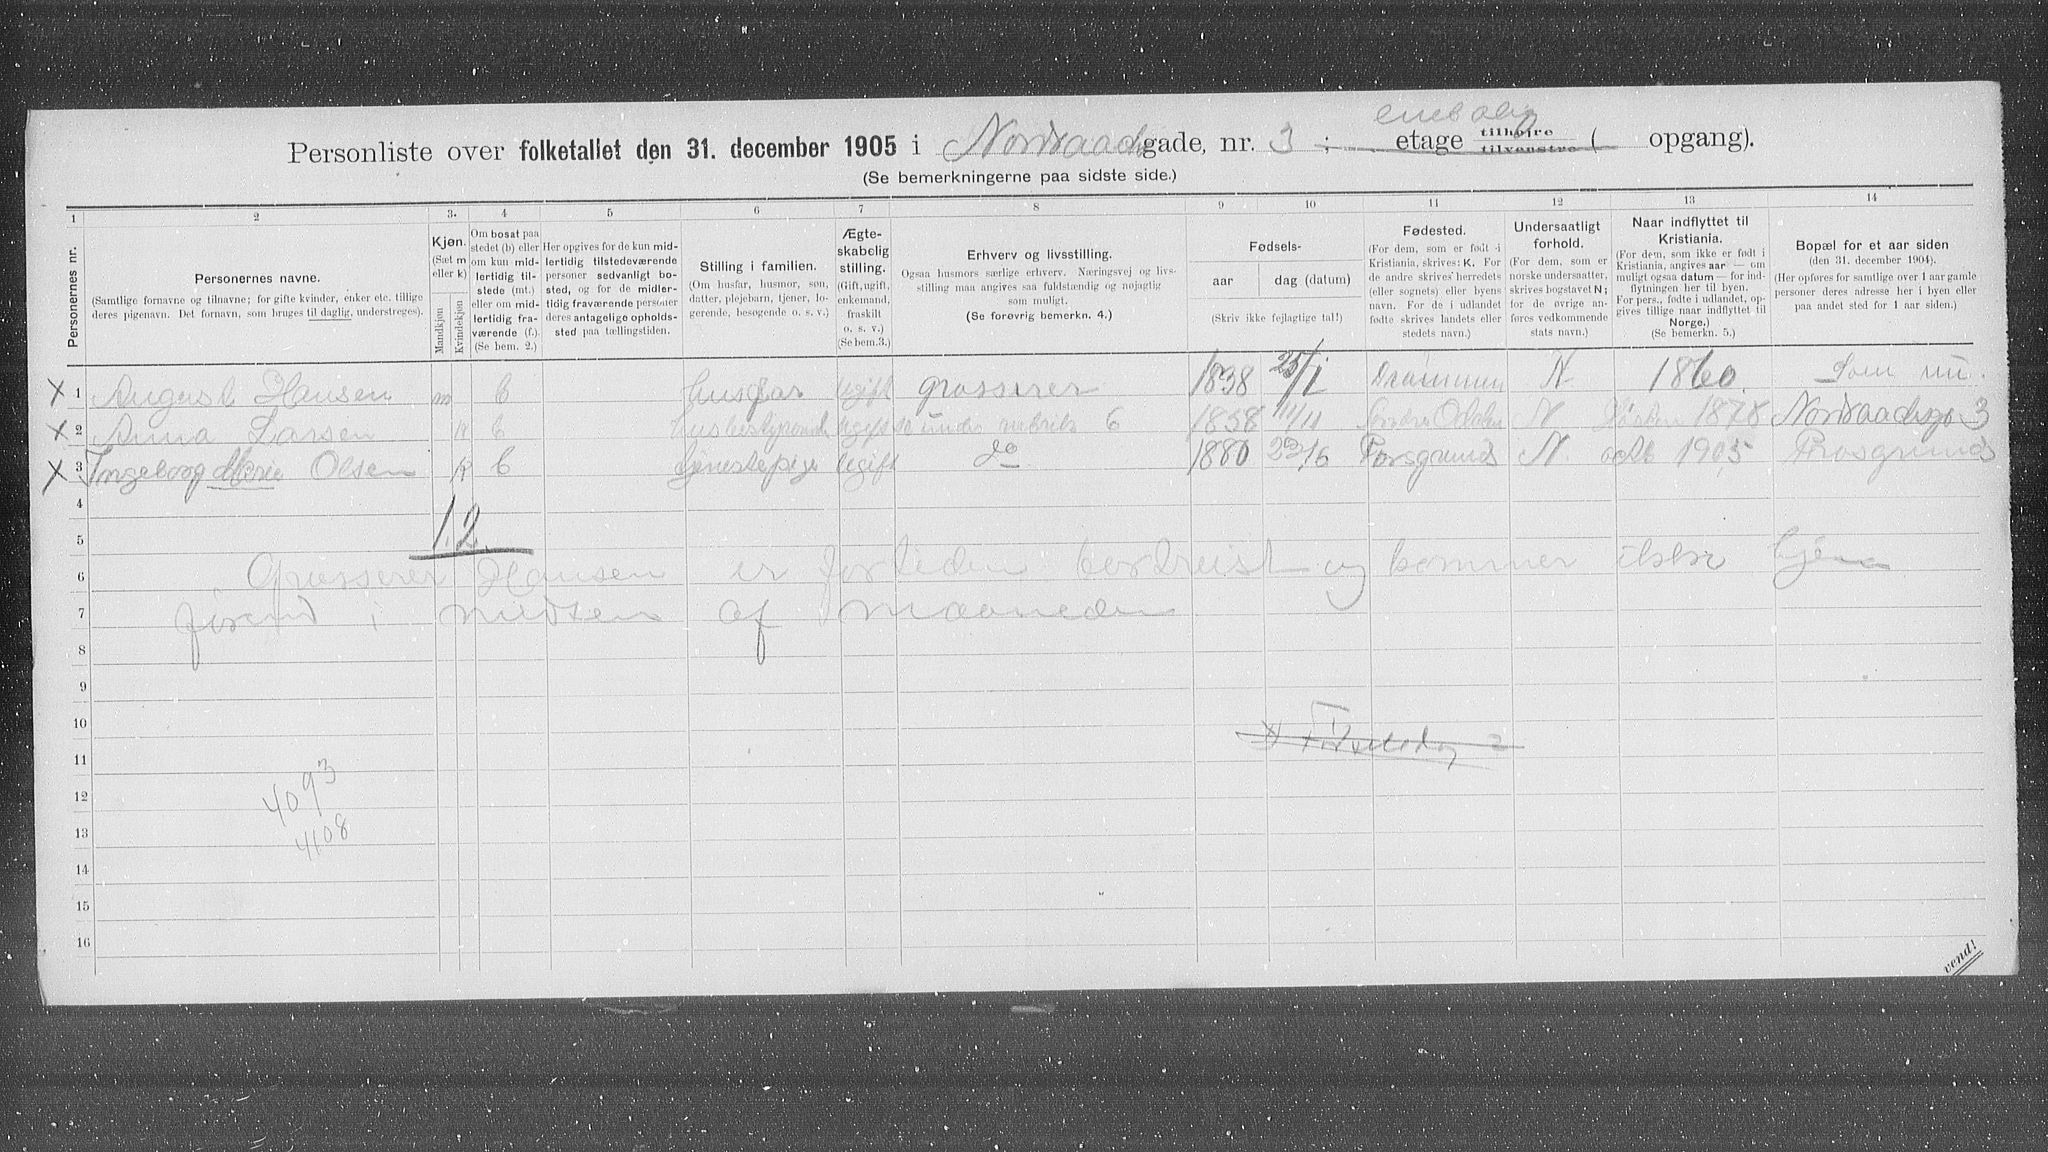 enebolig
Personliste over folketallet den 31. december 1905 i Nordraachgade, nr. 3 ; etage tilhøjre tilvenstre ( opgang).
(Se bemerkningerne paa sidste side.)
1 2 3. 4 5 6 7 8 9 10 11 12 13 14
Personernes nr.
Personernes navne.
(Samtlige fornavne og tilnavne; for gifte kvinder, enker etc. tillige deres pigenavn. Det fornavn, som bruges til daglig, understreges).
Kjøn.
(Sæt m eller k)
Mandkjøn
Kvindekjøn
Om bosat paa stedet (b) eller om kun midlertidig tilstede (mt.) eller om midlertidig fraværende (f.).
(Se bem. 2.)
Her opgives for de kun midlertidig tilstedeværende personer sedvanligt bosted, og for de midlertidig fraværende personer deres antagelige opholdssted paa tællingstiden.
Stilling i familien.
(Om husfar, husmor, søn, datter, plejebarn, tjener, logerende, besøgende o. s. v.)
Ægteskabelig stilling.
(Gift, ugift, enkemand, fraskilt o. s. v.)
(Se bem. 3.)
Erhverv og livsstilling.
Ogsaa husmors særlige erhverv. Næringsvej og livsstilling maa angives saa fuldstændig og nøjagtig som muligt.
(Se forøvrig bemerkn. 4.)
Fødsels-
aar dag (datum)
(Skriv ikke fejlagtige tal!)
Fødested.
(For dem, som er født i Kristiania, skrives: K. For de andre skrives herredets (eller sognets) eller byens navn. For de i udlandet fødte skrives landets eller stedets navn.)
Undersaatligt forhold.
(For dem, som er norske undersaatter, skrives bogstavet N; for de øvrige anføres vedkommende stats navn.)
Naar indflyttet til Kristiania.
(For dem, som ikke er født i Kristiania, angives aar — om muligt ogsaa datum — for indflytningen her til byen. For pers., fødte i udlandet, opgives tillige naar indflyttet til Norge.)
(Se bemerkn. 5.)
Bopæl for et aar siden
(den 31. december 1904).
(Her opføres for samtlige over 1 aar gamle personer deres adresse her i byen eller paa andet sted for 1 aar siden.)
X 1 August Hansen m b husfar ugift grosserer 1838 25/1 Drammen N. 1860. Som nu.
X 2 Anna Larsen k b husbestyrende ugift se under rubrik 6 1858 11/11 Odalen N 1878 Nordraachsg 3
X 3 Ingeborg Marie Olsen k b tjenestepige ugift do 1880 23/6 Porsgrund N. okt 1905 Prosgrund
4
1. 2.
5
6 Grosserer Hansen er fortiden bortreist og kommer ikke hjem
7 førend i midten af maaneden
8
9
10 X Fødselsdag
11
12 4093
13 4108
14
15
16
vend!